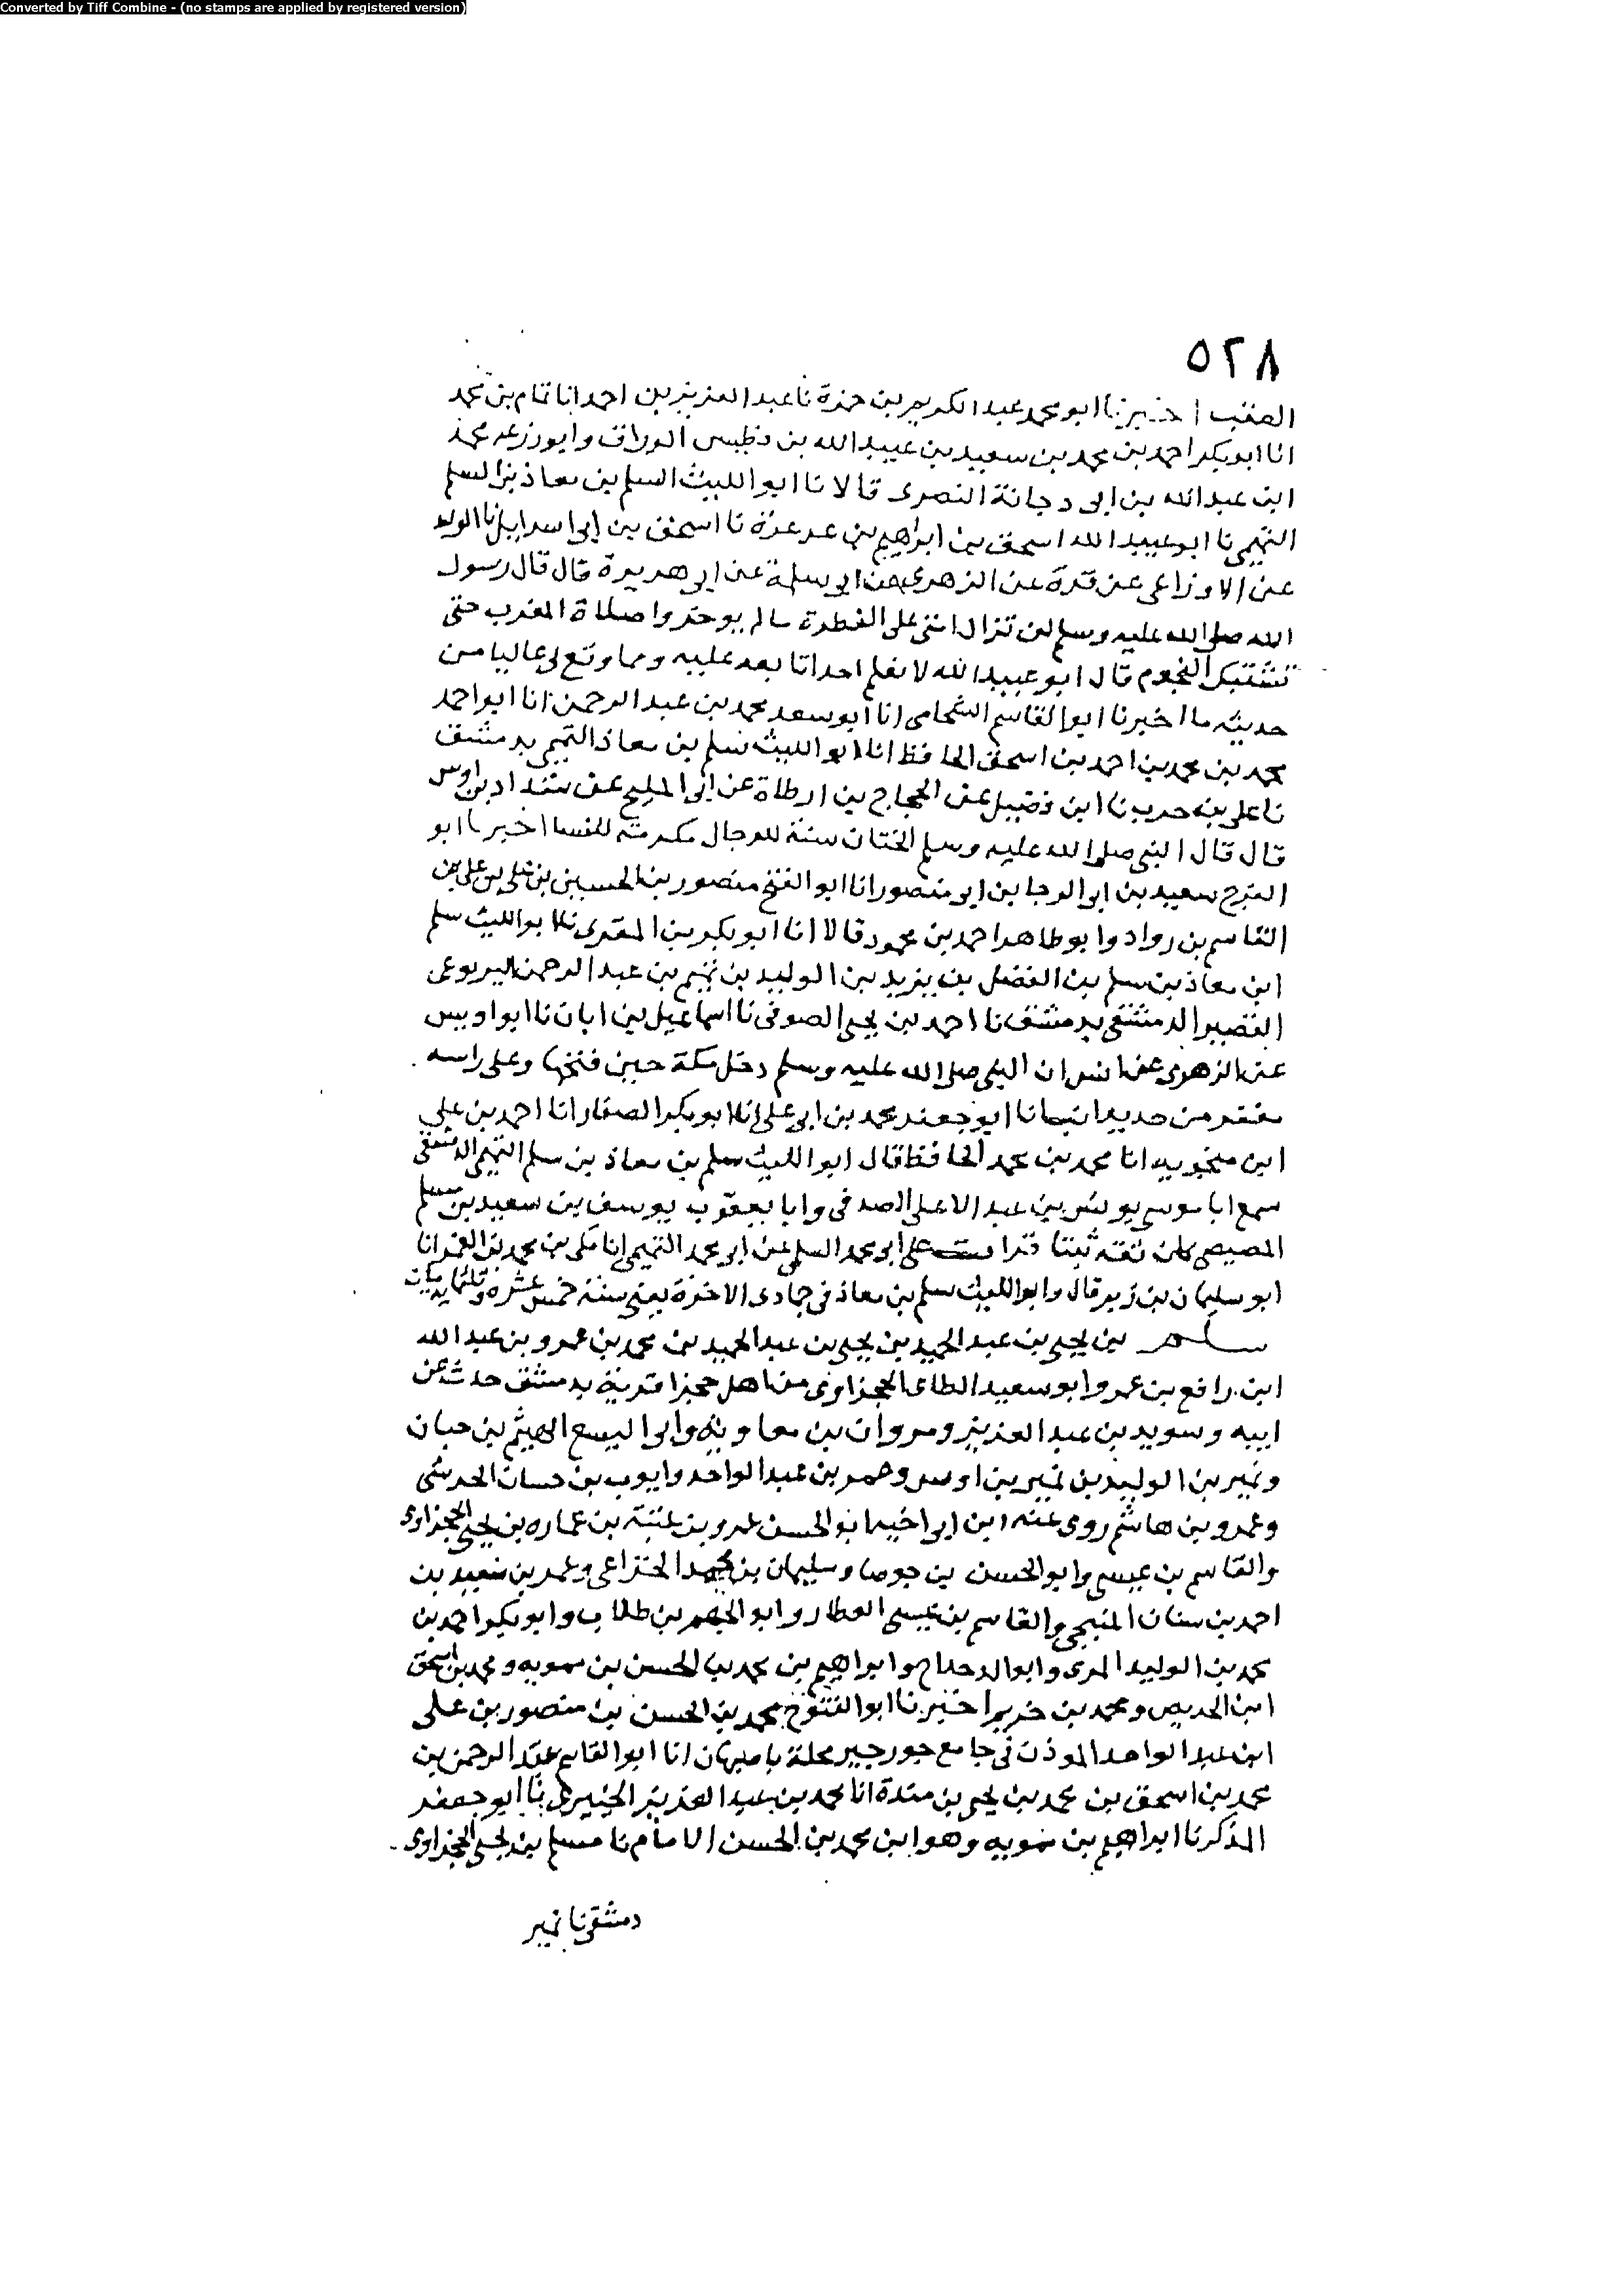 Converted by Tiff Combine - (no stamps are applied by registered version)
٥٢٨
العقب اخبرنا ابو محمد عبد الكريم بن حمزة نا عبد العزيز بن احمد انا تمام بن محمد
انا ابو بكر احمد بن محمد بن سعيد بن عبيد الله بن فطيس الوراق وابو زرعه محمد
ابن عبد الله بن ابى دجانة النصرى قالا نا ابو الليث السلم بن معاذ بن السلم
التميمى نا ابو عبيد الله اسحق بن ابراهيم بن عرعرة نا اسحق بن ابى اسرايل نا الوليد
عن الاوزاعى عن قرة عن الزهرى عن ابى سلمة عن ابى هريرة قال قال رسول
الله صلى الله عليه وسلم لن تزال امتى على الفطرة مالم يوخروا صلاة المغرب حتى
تشتبك النجوم قال ابو عبيد الله لا نعلم احدا تابعه عليه ومما وقع لى عاليا من
حديثه ما اخبرنا ابو القاسم الشحامى انا ابو سعد محمد بن عبد الرحمن انا ابو احمد
محمد بن محمد بن احمد بن اسحق الحافظ انا ابو الليث سلم بن معاذ التميمى بدمشق
نا على بن حرب نا ابن فضيل عن الحجاج بن ارطاة عن ابى المليح عن شداد بن اوس
قال قال النبى صلى الله عليه وسلم الختان سنة للرجال مكرمة للنسا اخبرنا ابو
الفرج سعيد بن ابى الرجا بن ابى منصور انا ابو الفتح منصور بن الحسين بن على بن
القاسم بن رواد وابو طاهر احمد بن محمود قالا انا ابو بكر بن المقرى نا ابو الليث سلم
ابن معاذ بن سلم بن الفضل بن يزيد بن الوليد بن تميم بن عبد الرحمن اليربوعى
القصير الدمشقى بدمشق نا احمد بن يحيى الصوفى نا اسماعيل بن ابان نا ابو اويس
عن الزهرى عن انس ان النبى صلى الله عليه وسلم دخل مكة حين فتحها وعلى راسه
مغفر من حديد انبانا ابو جعفر محمد بن ابى على انا ابو بكر الصفار انا احمد بن على
ابن منجويه انا محمد بن محمد الحافظ قال ابو الليث سلم بن معاذ بن سلم التميمى الدمشقى
سمع ابا موسى يونس بن عبد الاعلى الصدفى وابا يعقوب يوسف بن سعيد بن مسلم
المصيصى كان ثقة ثبتا قرات على ابى محمد السلمى عن ابى محمد التميمى انا مكى بن محمد بن الغمر انا
ابو سليمان بن زبر قال وابو الليث سلم بن معاذ فى جمادى الاخرة يعنى سنة خمس عشرة وثلثماية مات
سلم بن يحيى بن عبد الحميد بن يحيى بن عبد الحميد بن محمد بن عمرو بن عبد الله
ابن رافع بن عمرو ابو سعيد الطاى الحجراوى من اهل حجرا قرية بدمشق حدث عن
ابيه وسويد بن عبد العزيز ومروان بن معاوية وابى اليسع الهيثم بن حبان
ونمير بن الوليد بن نمير بن اوس وعمر بن عبد الواحد وايوب بن حسان الحرشى
وعمرو بن هاشم روى عنه ابن ابى اخيه ابو الحسن عمرو بن عتبة بن عماره بن يحيى الحجراوى
والقاسم بن عيسى وابو الحسن بن جوصا وسليمان بن محمد الخزاعى وعمر بن سعيد بن
احمد بن سنان المنبجى والقاسم بن عيسى العطار وابو الجهم بن طلاب وابو بكر احمد بن
محمد بن الوليد المرى وابو الدحداح وابراهيم بن محمد بن الحسن بن متويه ومحمد بن اسحق
ابن الحريص ومحمد بن خريم اخبرنا ابو الفتوح محمد بن الحسن بن منصور بن على
ابن عبد الواحد الموذن فى جامع جورجير محلة باصبهان انا ابو القاسم عبد الرحمن بن
محمد بن اسحق بن محمد بن يحيى بن مندة انا محمد بن عبد العزيز نا ابو جعفر
المذكر نا ابراهيم بن متويه وهو ابن محمد بن الحسن الامام نا مسلم بن يحيى الحجراوى
دمشقى نا نمير